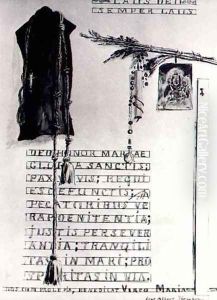 LAUS DEI
SEMPER LAUS
DEO HONOR MARIAE
GLORIA SANCTIS;
PAX VIVIS; REQUI
ES DEFUNCTIS;
PECATORIBUS VE
RA POENITENTIA;
JUSTIS PERSEVER
ANTIA; TRANQUIL
ITAS IN MARI; PRO
SPERITAS IN VIA.
BENEDICAT VIRGO MARIA